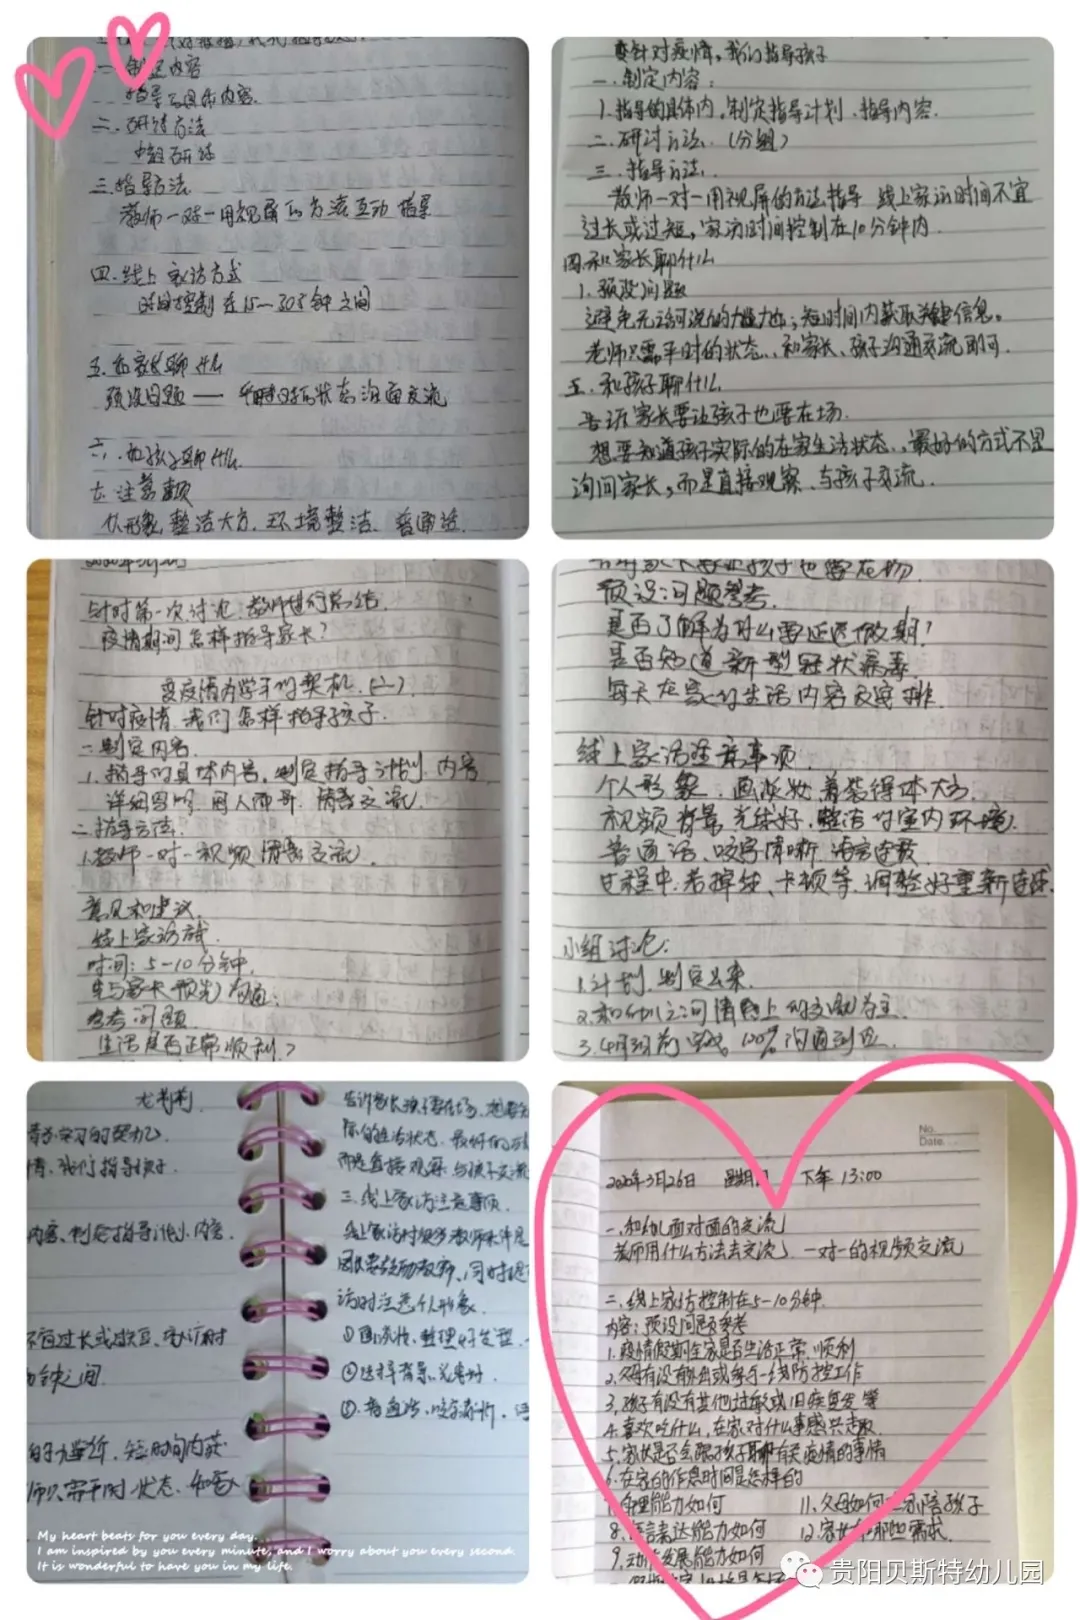 一.制定内容
指导的具体内容.
二.研讨方法
三.指导方法
教师一对一用视屏的方法互动指导
四.线上家访方式
时间控制在15-30分钟之间
五.和家长聊什么
预设问题——平时对的状态沟通交流
六.和孩子聊什么
七.注意事项
个人形象,整洁大方.环境整洁.普通话.
变针对疫情,我们指导孩子
一.制定内容:
1.指导的具体内,制定指导计划.指导内容.
二.研讨方法.(分组)
三.指导方法.
教师一对一用视屏的方法指导 线上家访时间不宜
过长或过短,家访时间控制在10分钟内.
四.和家长聊什么
1.预设问题
避免无话可说的尴尬;短时间内获取关键信息。
老师只需平时的状态、和家长、孩子沟通交流即可.
五.和孩子聊什么
告诉家长要让孩子也要在场.
想要知道孩子实际的在家生活状态、最好的方式不是
询问家长,而是直接观察、与孩子交流.
针对第一次讨论.教师进行总结.
疫情期间怎样指导家长?
变疫情为学习的契机.(二)
针对疫情.我们怎样指导孩子.
一.制定内容.
1.指导的具体内容,制定指导计划.内容
二.指导方法.
1.教师一对一视频情感交流.
意见和建议.
时间:5-10分钟.
先与家长预先沟通:
参考问题
生活是否正常顺利?
预设问题参考.
是否了解为什么要延迟假期?
是否知道新型冠状病毒
每天在家的生活内容及安排.
线上家访注意事项.
个人形象.画淡妆.着装得体大方.
视频背景光线好.整洁的室内环境.
普通话.咬字清晰 语言连贯.
过程中.若掉线、卡顿等.调整好重新连线.
小组讨论:
1.计划.制定出来.
2.和幼儿之间情感上的交流为主.
龙莉莉.
为学习的契机.
情,我们指导孩子.
内容、制定指导计划.内容.
不宜过长或过短、家访时
分钟之间.
的尴尬、短时间内获
师只需平时状态、和家人
告诉家长孩子要在场.想要知
际的生活状态.最好的方
而是直接观察.与孩子交流
三.线上家访注意事项.
访时注意个人形象.
②选择背景.光线好.
③.普通话、咬字清晰.
My heart beats for you every day...
I am inspired by you every minute, and I worry about you every second.
It is wonderful to have you in my life.
No.
Date.
2020年3月26日 星期四 下午13:00
一.和幼儿面对面的交流
老师用什么方法去交流.一对一的视频交流
二.线上家访控制在5-10分钟.
内容:预设问题参考
1.疫情假期全家是否生活正常、顺利
2.父母有没有外出或参与一线防控工作
3.孩子有没有其他过敏或旧疾复发等
4.喜欢吃什么,在家对什么事感兴趣
5.家长是否会跟孩子聊有关疫情的事情
6.在家的作息时间是怎样的
7.自理能力如何 11.父母如何陪孩子
8.语言表达能力如何 12.家长有哪些需求
9.动作发展能力如何
贵阳贝斯特幼儿园